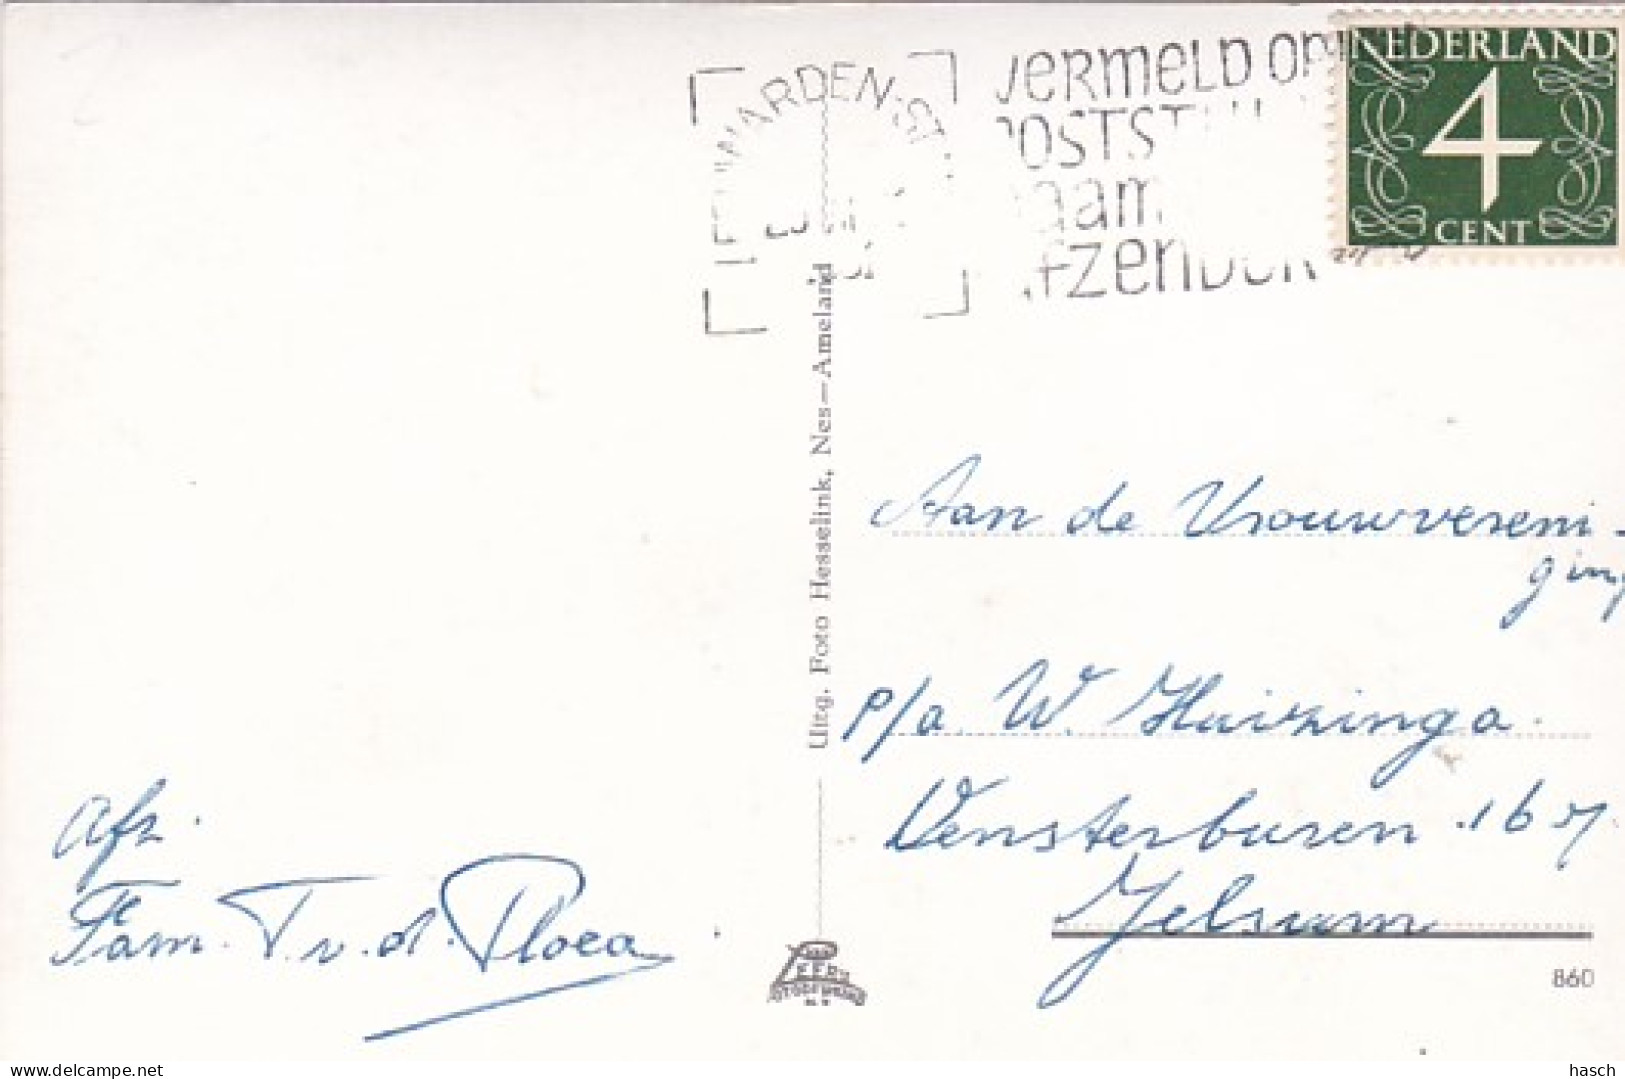 LEEUWARDEN-ST
VERMELD OP
POSTST
naam
afzender
NEDERLAND
4
CENT
Uitg. Foto Hesselink, Nes—Ameland
Aan de Vrouwvereni-
ging
p/a. W. Huizinga.
Vensterburen 16
Jelsum
Afz.
Fam. T. v. d. Ploeg
860
hasch
www.delcampe.net